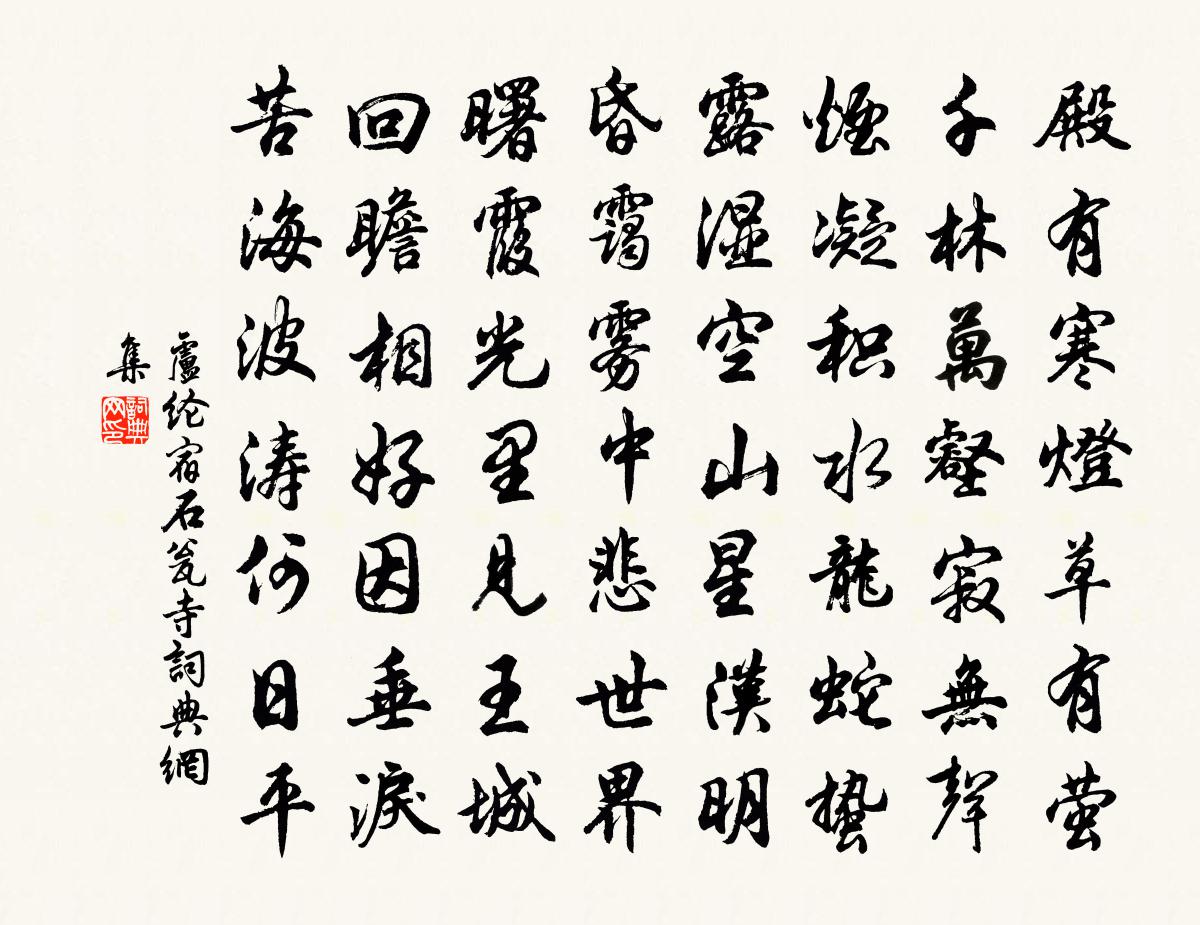 殿有寒燈草有萤
千林萬壑寂無聲
煙凝积水龍蛇蟄
露湿空山星漢明
昏靄雾中悲世界
曙霞光里見王城
回瞻相好因垂淚
苦海波涛何日平
盧纶宿石瓮寺詞典網
集
詞典
网印